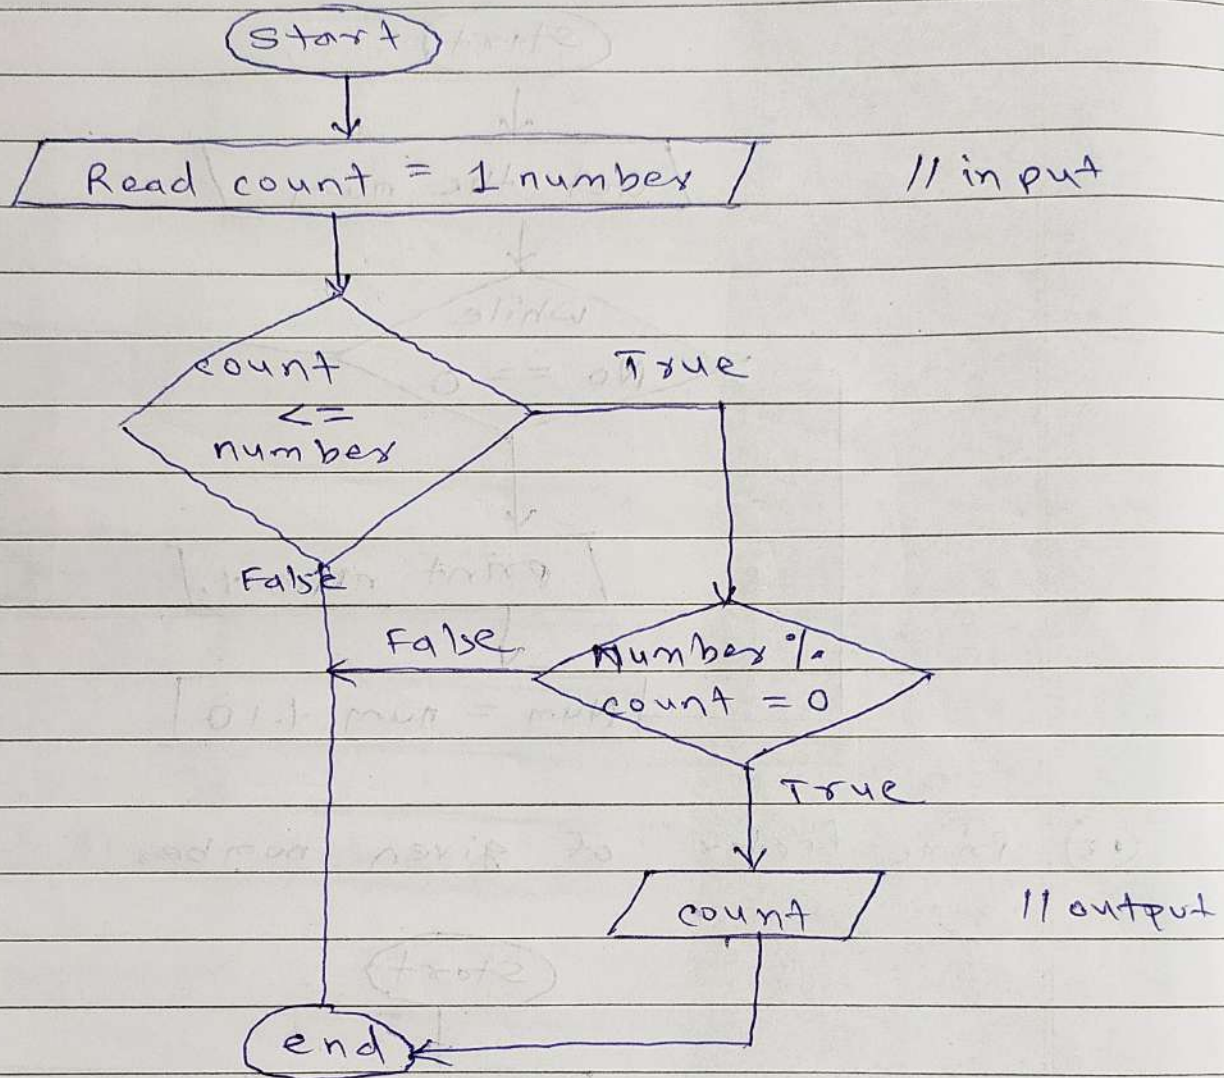 Start
Read count = 1 number // input
count
<=
number
True
False
False
Number %
count = 0
True
count // output
end